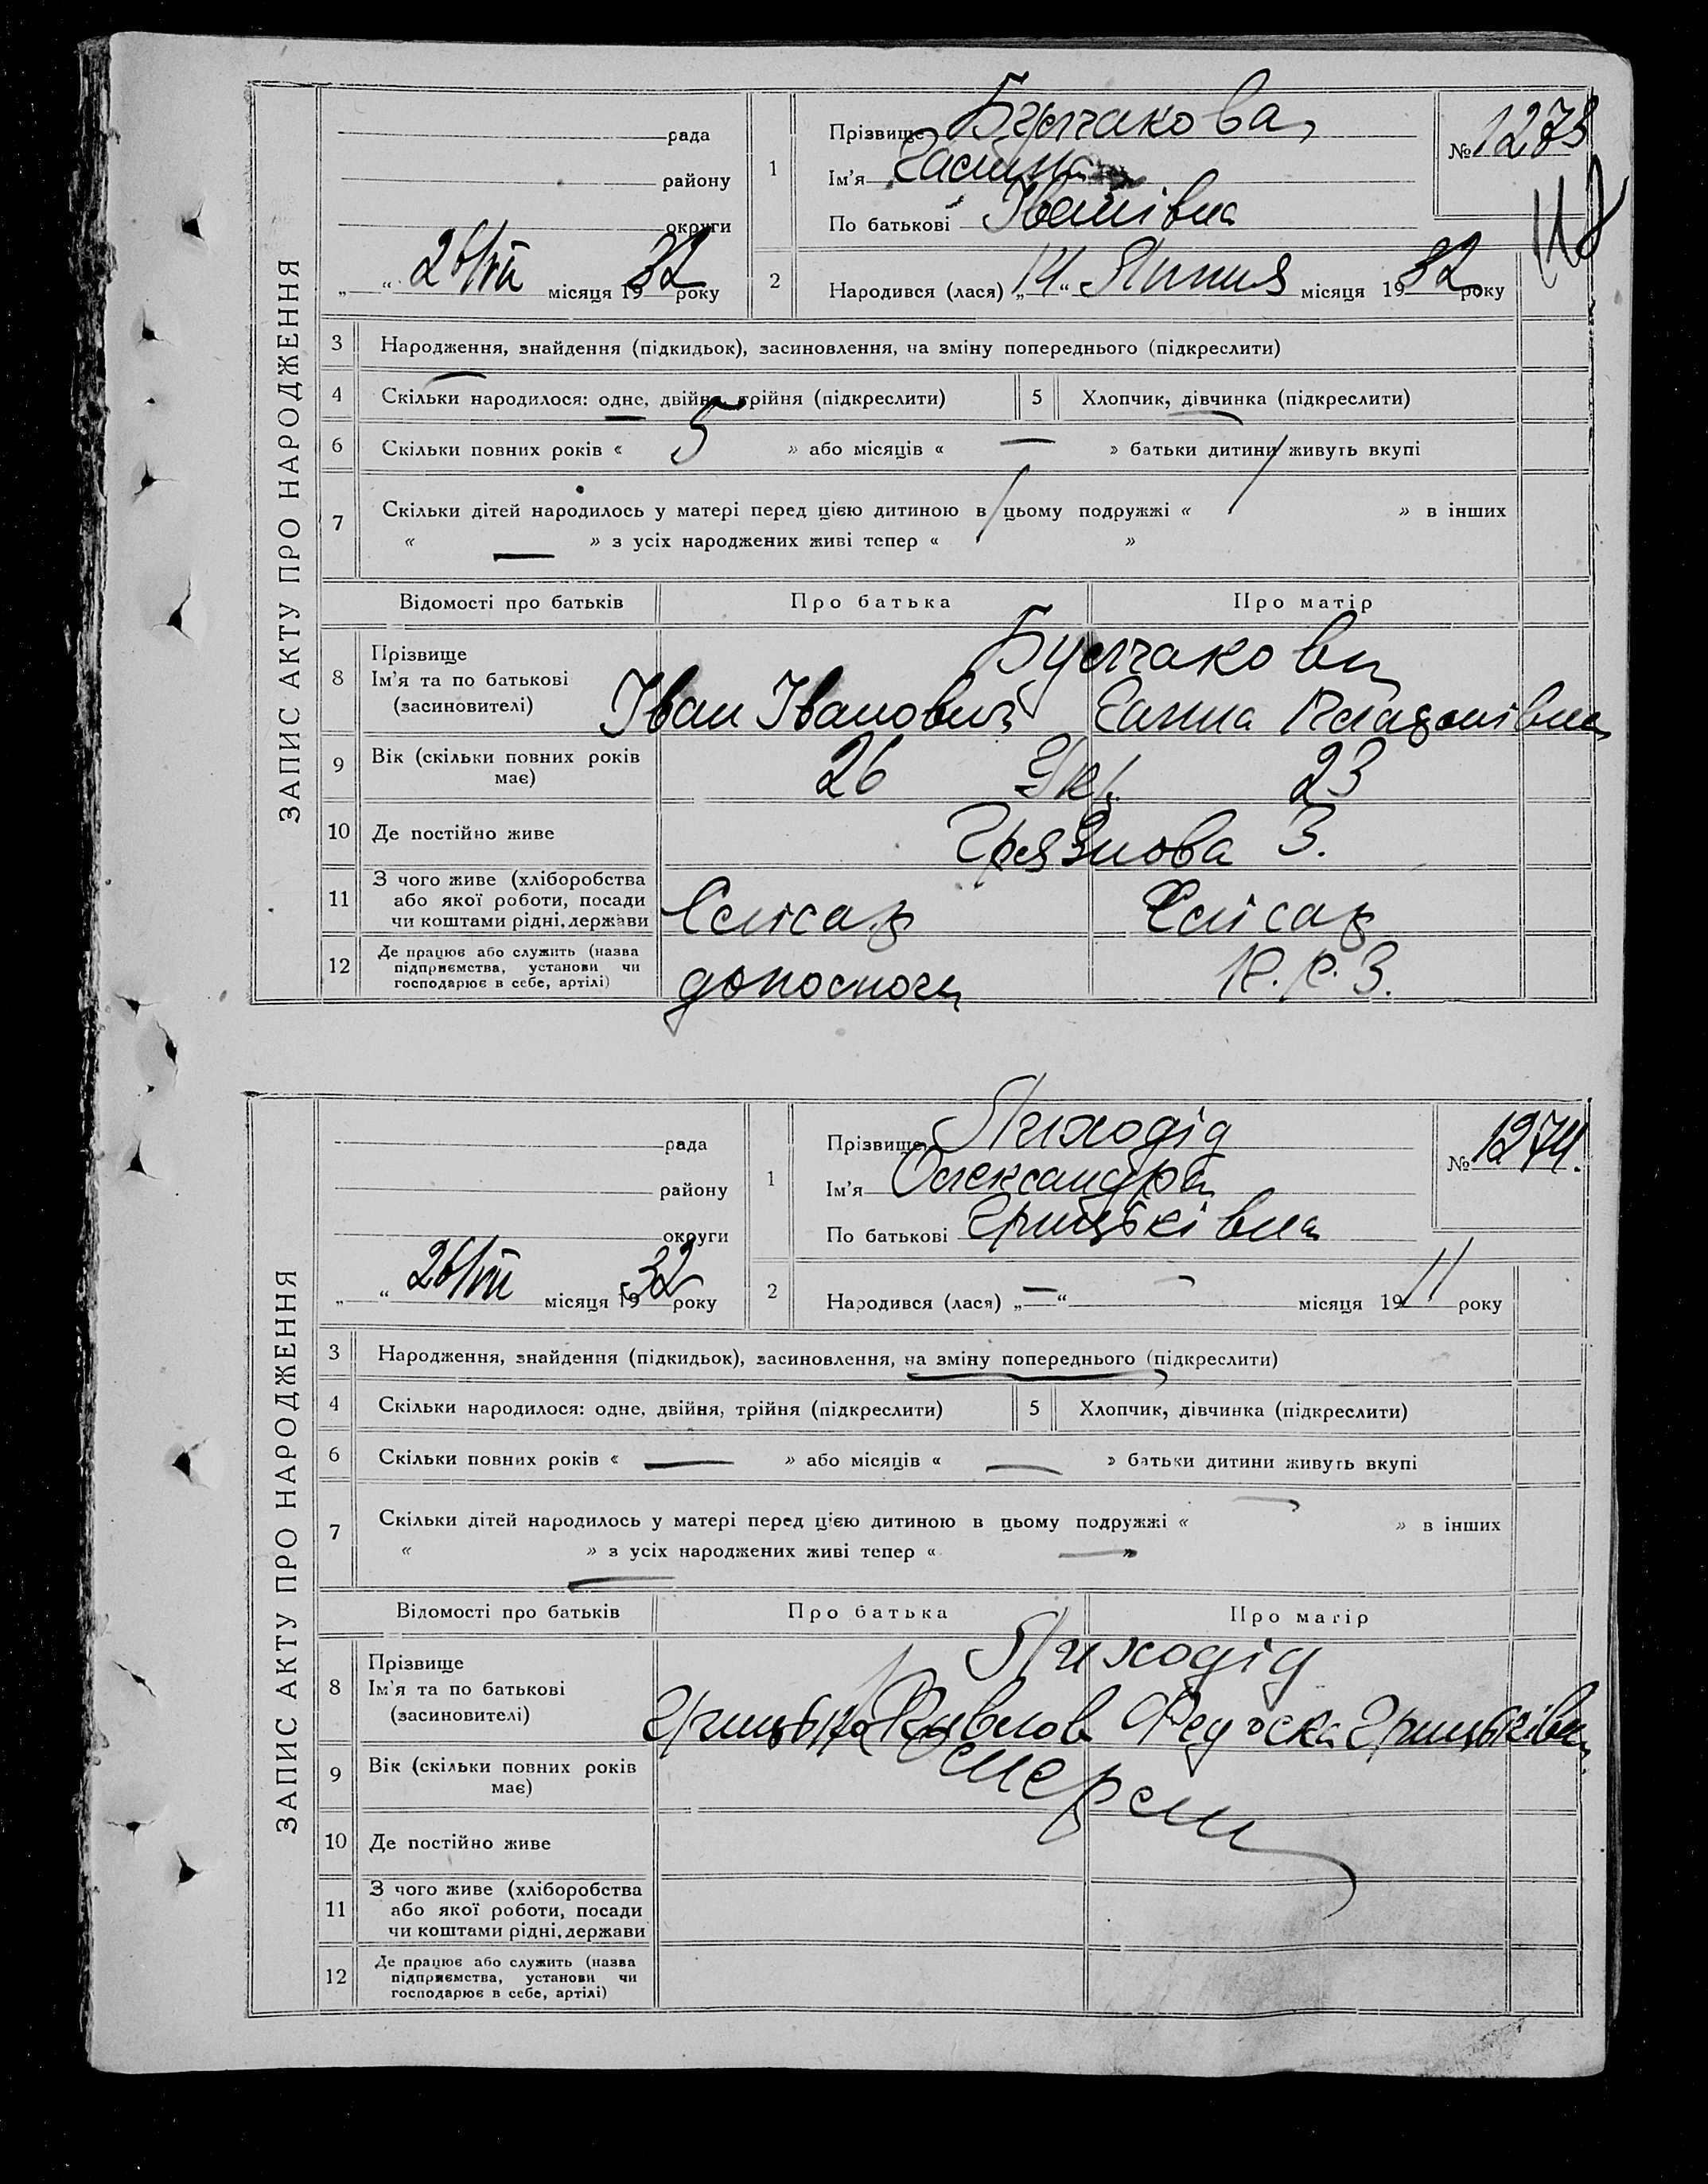 ЗАПИС АКТУ ПРО НАРОДЖЕННЯ
рада
району
округи
„ “ 26/VII місяця 1932 року
1
Прізвище
Ім'я
По батькові Іванівна
№ 1273
2
Народився (лася) „14“ Липня місяця 1932 року
3 Народження, знайдення (підкидьок), засиновлення, на зміну попереднього (підкреслити)
4 Скільки народилося: одне, двійня, трійня (підкреслити) 5 Хлопчик, дівчинка (підкреслити)
6 Скільки повних років « 5 » або місяців « — » батьки дитини живуть вкупі
7 Скільки дітей народилось у матері перед цією дитиною в цьому подружжі « / » в інших
« — » з усіх народжених живі тепер « / »
Відомості про батьків Про батька Про матір
8 Прізвище
Ім'я та по батькові
(засиновителі)
Іван Іванович Ганна
9 Вік (скільки повних років має) 26 Укр. 23
10 Де постійно живе Грязнова 3.
11 З чого живе (хліборобства
або якої роботи, посади
чи коштами рідні, держави
Слюсар Слюсар
12 Де працює або служить (назва
підприємства, установи чи
господарює в себе, артілі)
ЗАПИС АКТУ ПРО НАРОДЖЕННЯ
рада
району
округи
„ “ 26/VII місяця 1932 року
1
Прізвище Лиходід
Ім'я Олександра
По батькові Грицьківна
№ 1274.
2
Народився (лася) „—“ — місяця 1911 року
3 Народження, знайдення (підкидьок), засиновлення, на зміну попереднього (підкреслити)
4 Скільки народилося: одне, двійня, трійня (підкреслити) 5 Хлопчик, дівчинка (підкреслити)
6 Скільки повних років « — » або місяців « — » батьки дитини живуть вкупі
7 Скільки дітей народилось у матері перед цією дитиною в цьому подружжі « — » в інших
« — » з усіх народжених живі тепер « — »
Відомості про батьків Про батька Про матір
8 Прізвище
Ім'я та по батькові
(засиновителі)
Лиходід
Грицько Павлов Федоска Грицьківна
9 Вік (скільки повних років має)
Умерли
10 Де постійно живе
11 З чого живе (хліборобства
або якої роботи, посади
чи коштами рідні, держави
12 Де працює або служить (назва
підприємства, установи чи
господарює в себе, артілі)